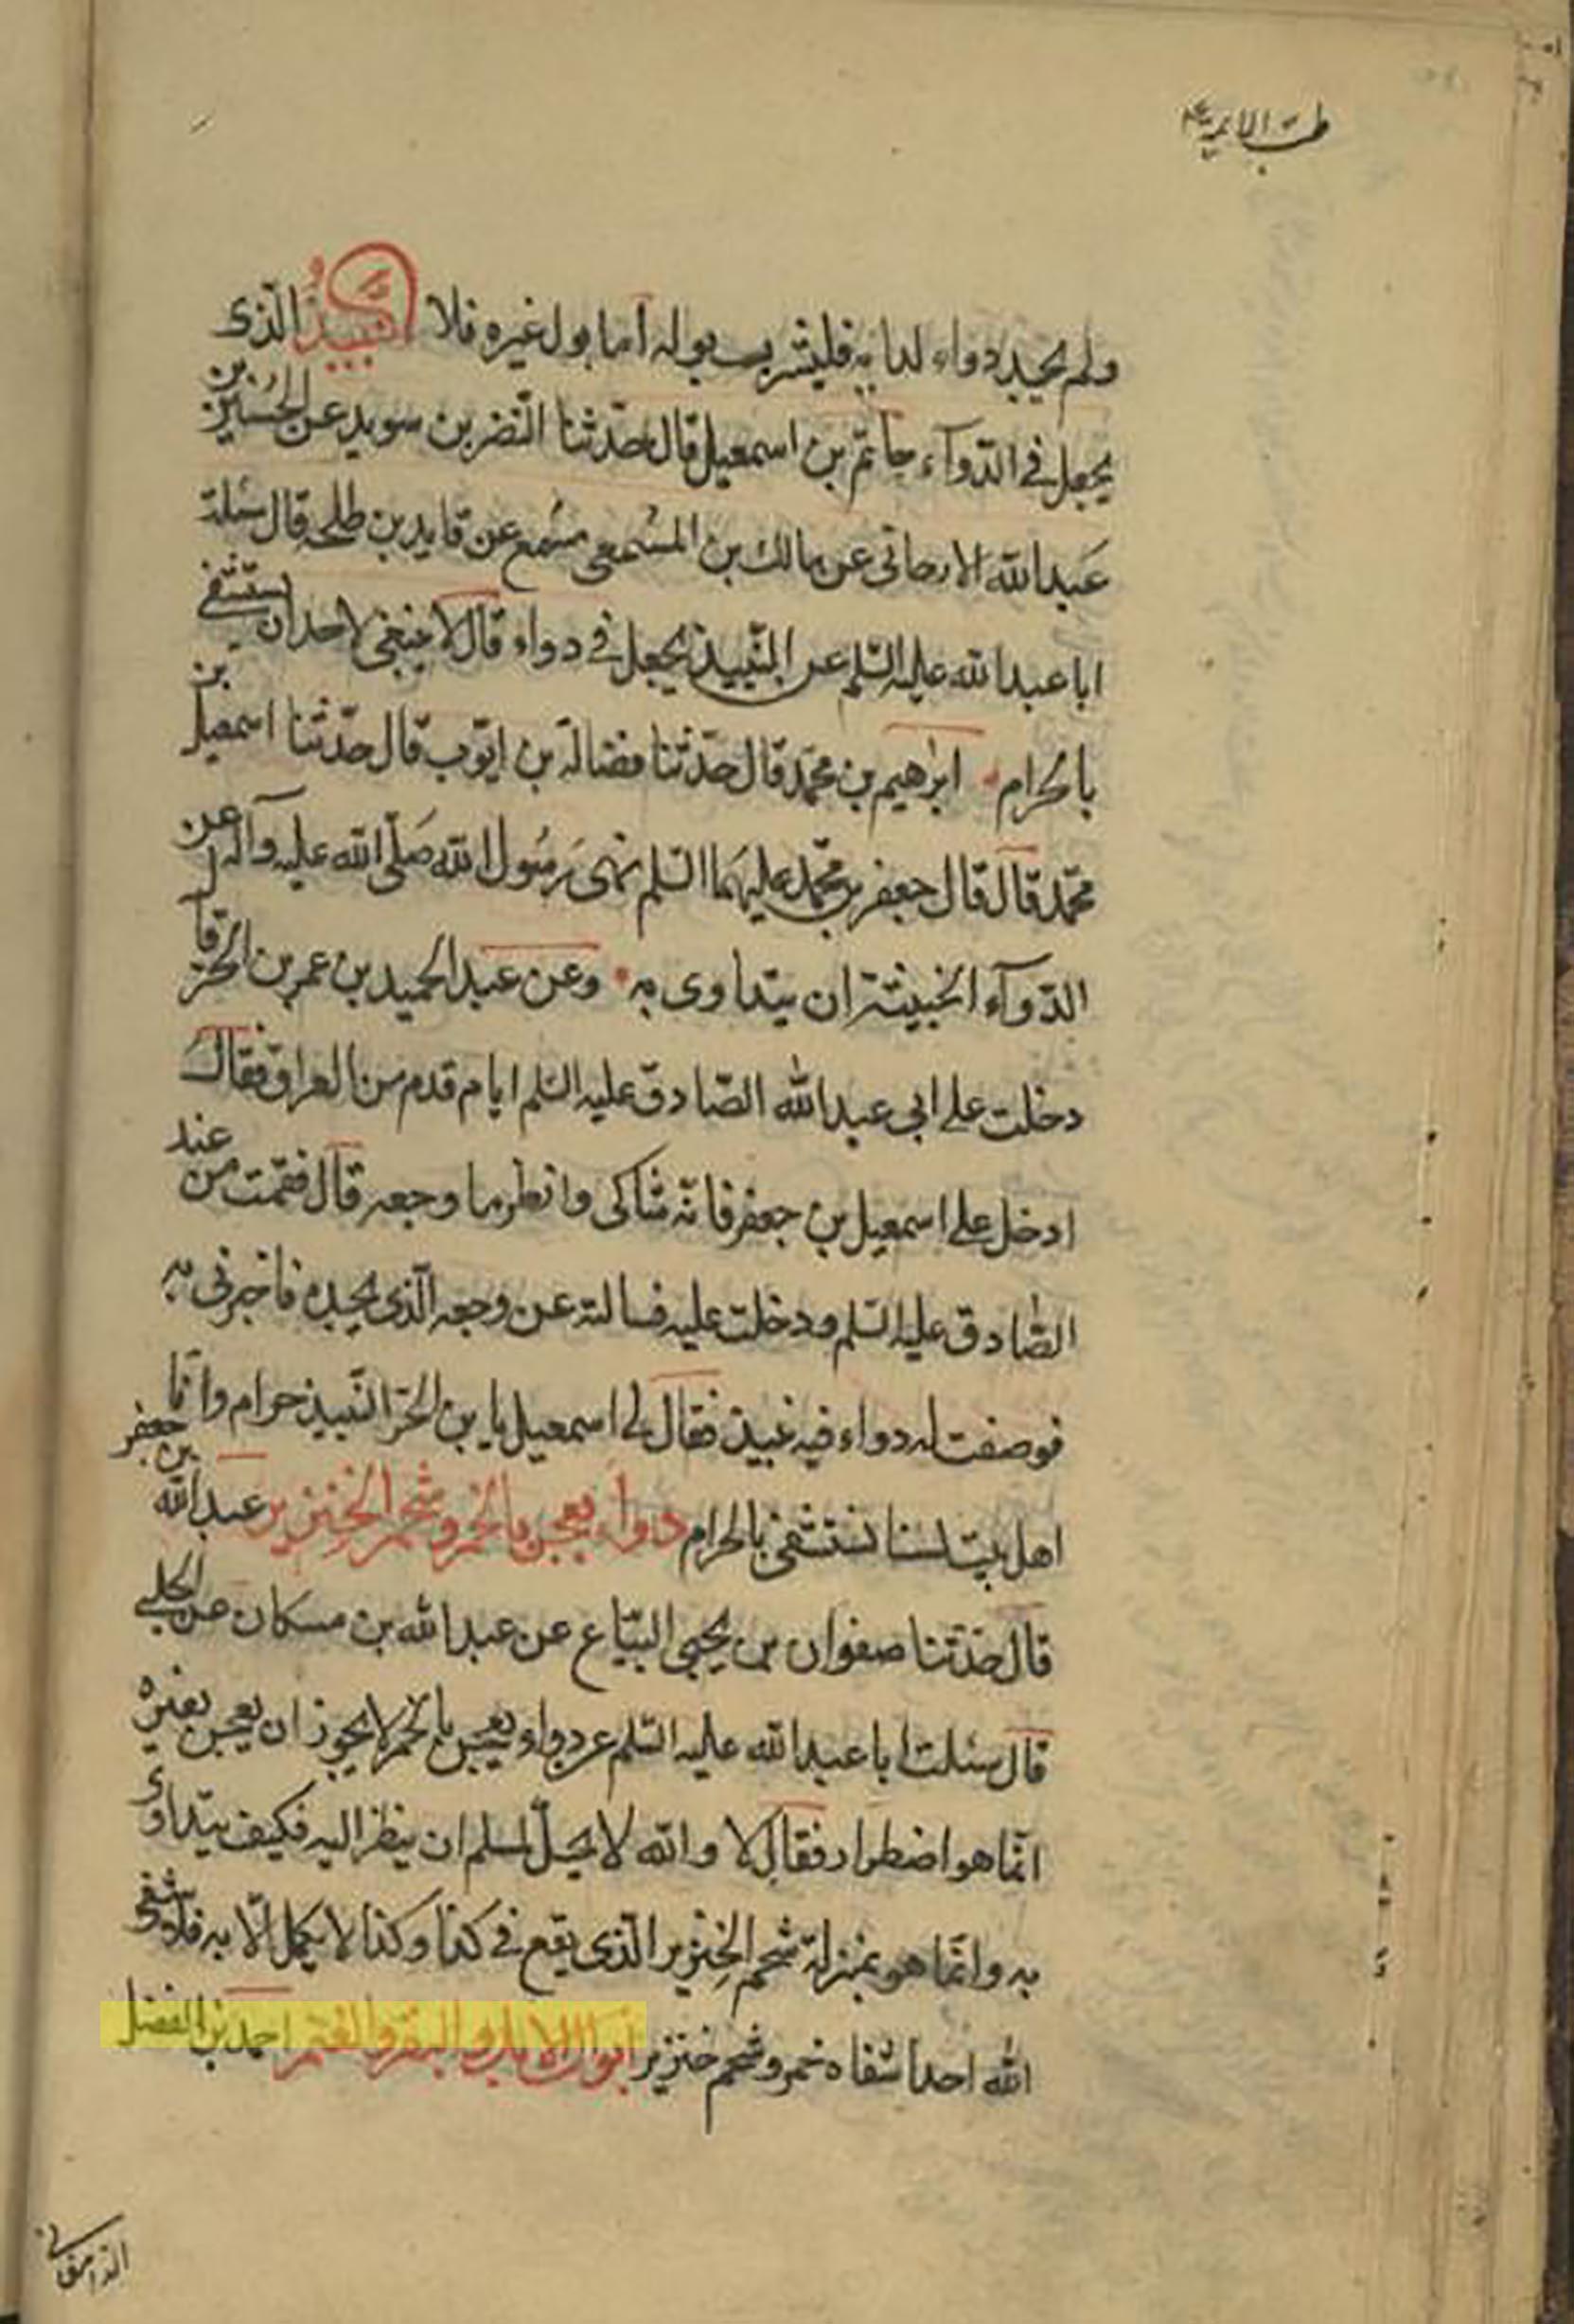 طب الائمة ع
ولم يجد دواء لدائه فليشرب بوله اما بول غيره فلا النبيذ الذى
يجعل فى الدوآء حاتم بن اسمعيل قال حدثنا النضر بن سويد عن الحسين بن
عبدالله الارجانى عن مالك بن المسمعى مسمع عن قايد بن طلحه قال سئلة
ابا عبدالله عليه السلم عن النبيذ يجعل فى دواء قال لا ينبغى لاحد ان يستشفى
بالحرام ابرهيم بن محمد قال حدثنا فضالة بن ايوب قال حدثنا اسمعيل بن
محمد قال قال جعفر بن محمد عليهما السلم نهى رسول الله صلى الله عليه وآله عن
الدوآء الخبيثة ان يتداوى به وعن عبد الحميد بن عمر بن الحر قال
دخلت على ابى عبدالله الصادق عليه السلم ايام قدم من العراق فقال
ادخل على اسمعيل بن جعفر فانه شاكى وانظر ما وجعه قال فقمت من عند
الصادق عليه السلم ودخلت عليه فسالته عن وجعه الذى يجده فاخبرنى به
فوصفت له دواء فيه نبيذ فقال لى اسمعيل يا بن الحر النبيذ حرام وانا
اهل بيت لسنا نستشفى بالحرام دواء يعجن بالخمر وشحم الخنزير عبدالله بن جعفر
قال حدثنا صفوان بن يحيى البياع عن عبدالله بن مسكان عن الحلبى
قال سئلت ابا عبدالله عليه السلم عن دواء يعجن بالخمر لا يجوز ان يعجن بغيره
انما هو اضطرار فقال لا والله لا يحل لمسلم ان ينظر اليه فكيف يتداوى
به وانما هو بمنزلة شحم الخنزير الذى يقع فى كذا وكذا لا يكمل الا به فلا شفى
الله احدا شفاه خمر وشحم خنزير ابوال الابل والبقر والغنم احمد بن الفضل
الدامغانى